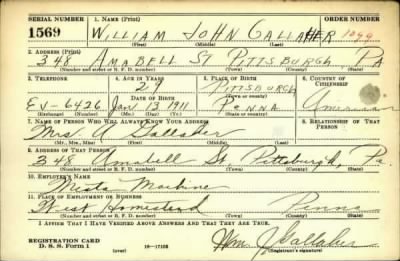 SERIAL NUMBER 1. NAME (Print) ORDER NUMBER
1569 WILLIAM JOHN GALLAHER 1099
(First) (Middle) (Last)
2. ADDRESS (Print)
348 AMABELL ST PITTSBURGH PA
(Number and street or R. F. D. number) (Town) (County) (State)
3. TELEPHONE 4. AGE IN YEARS 5. PLACE OF BIRTH 6. COUNTRY OF CITIZENSHIP
29 PITTSBURGH
DATE OF BIRTH (Town or county)
EV-6426 Jan 13 1911 PENNA American
(Exchange) (Number) (Mo.) (Day) (Yr.) (State or country)
7. NAME OF PERSON WHO WILL ALWAYS KNOW YOUR ADDRESS 8. RELATIONSHIP OF THAT PERSON
Mrs Gallaher
(Mr., Mrs., Miss) (First) (Middle) (Last)
9. ADDRESS OF THAT PERSON
348 Amabell St, Pittsburgh, Pa.
(Number and street or R. F. D. number) (Town) (County) (State)
10. EMPLOYER'S NAME
Mesta Machine
11. PLACE OF EMPLOYMENT OR BUSINESS
West Homestead Penna
(Number and street or R. F. D. number) (Town) (County) (State)
I AFFIRM THAT I HAVE VERIFIED ABOVE ANSWERS AND THAT THEY ARE TRUE.
REGISTRATION CARD
D. S. S. Form 1 (over) 16-17105 Wm J Gallaher
(Registrant's signature)